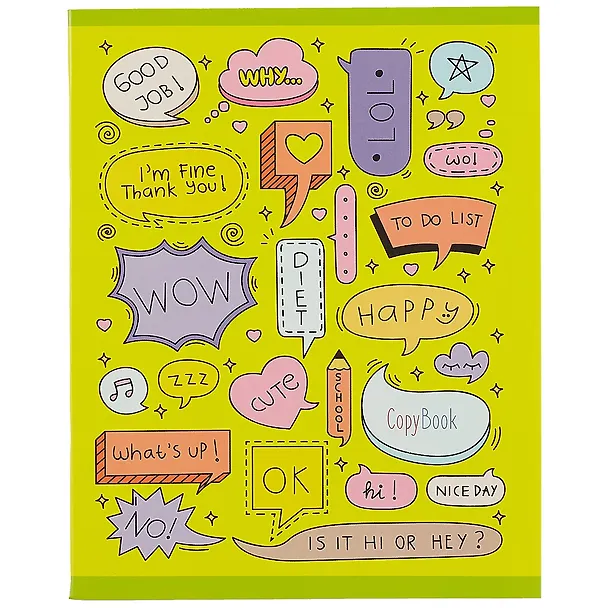 GOOD
JOB!
WHY...
LOL
wo!
I'm Fine
Thank You!
TO DO LIST
WOW
DIET
HAPPY
zzz
CUTE
SCHOOL
CopyBook
What's UP!
OK
hi!
NICE DAY
NO!
IS IT HI OR HEY?